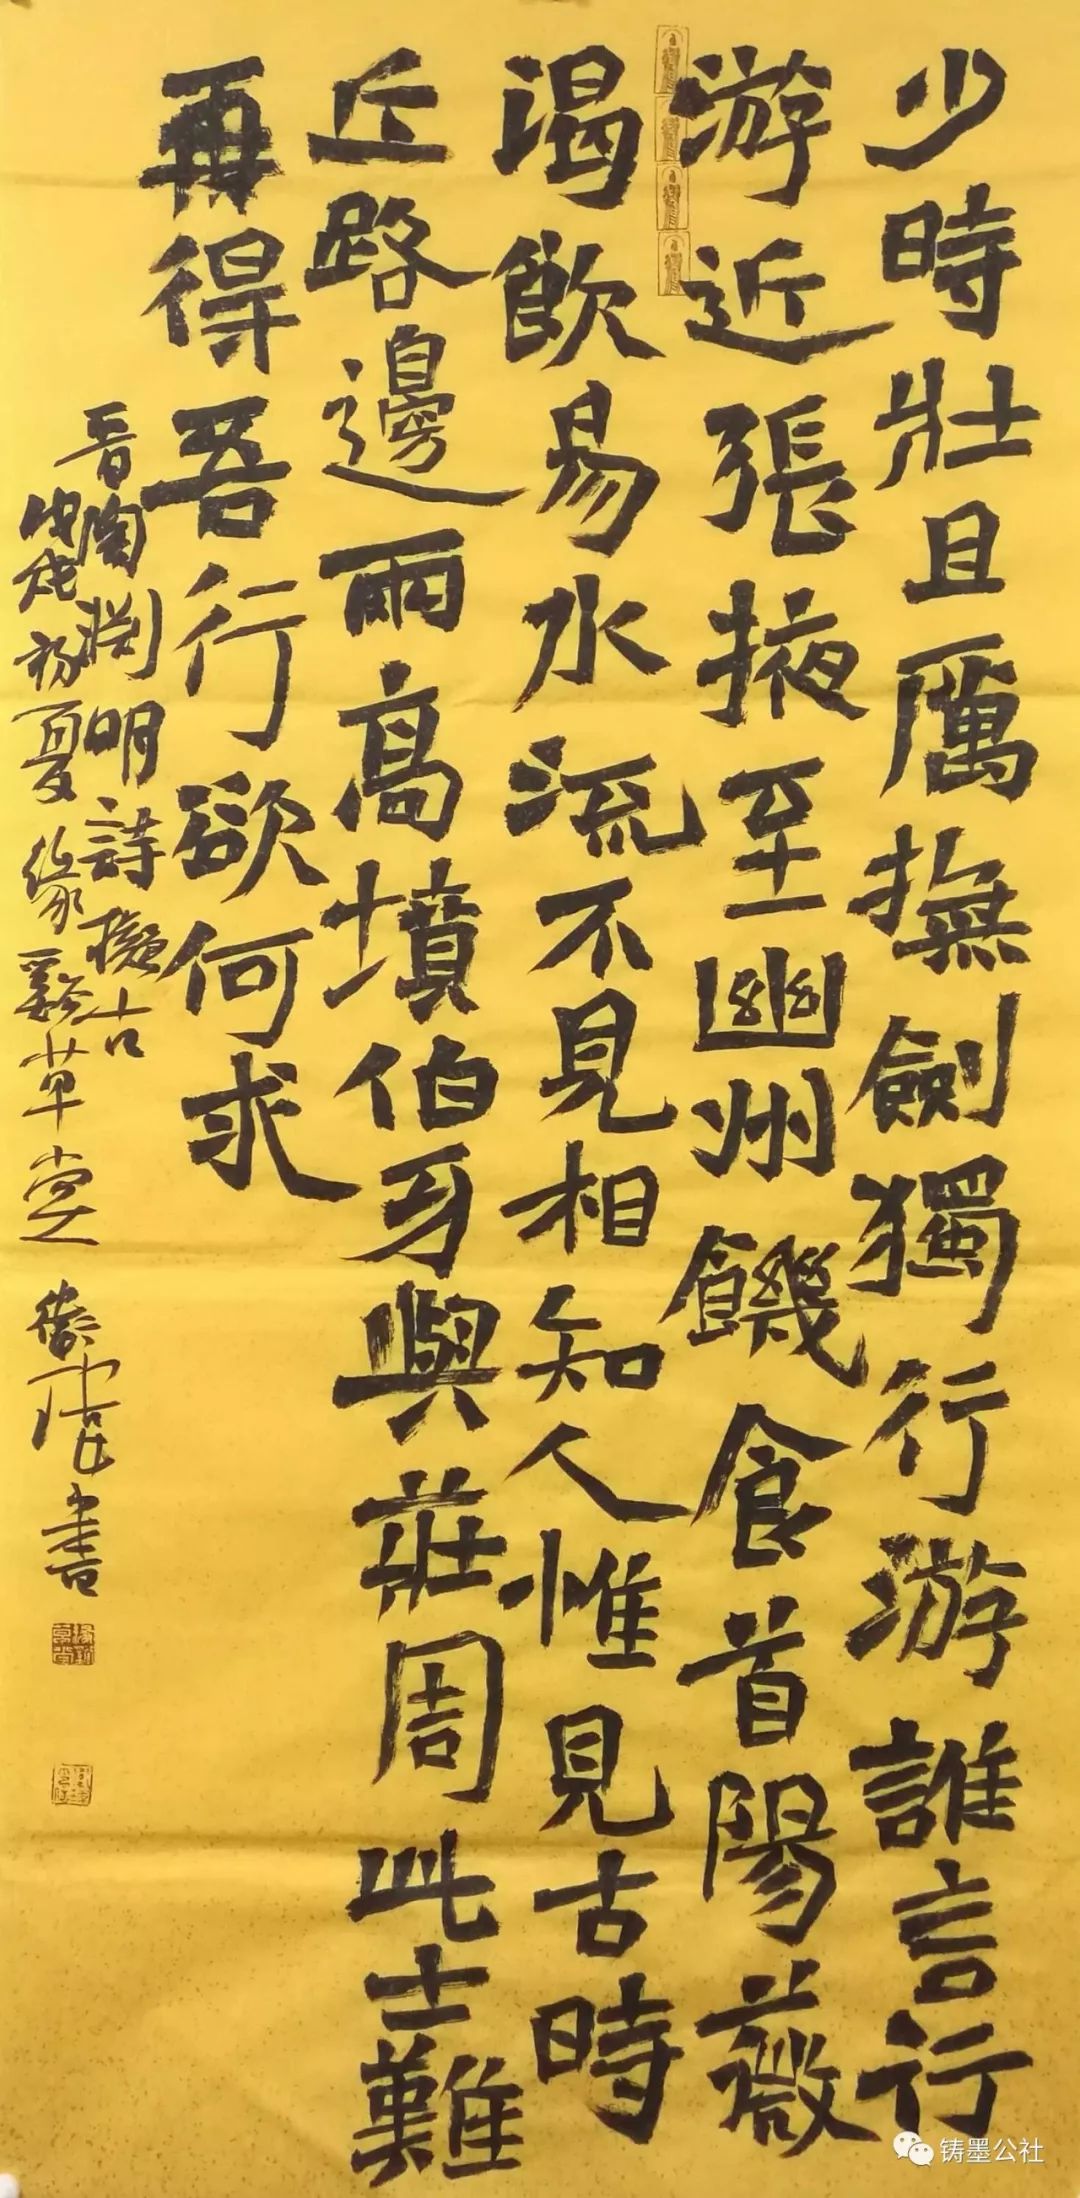 少時壯且厲撫劍獨行游誰言行
游近張掖至幽州饑食首陽薇
渴飲易水流不見相知人惟見古時
丘路邊兩高墳伯牙與莊周此士難
再得吾行欲何求
晉陶淵明詩擬古
戊戌初夏緣谿草堂 書
铸墨公社